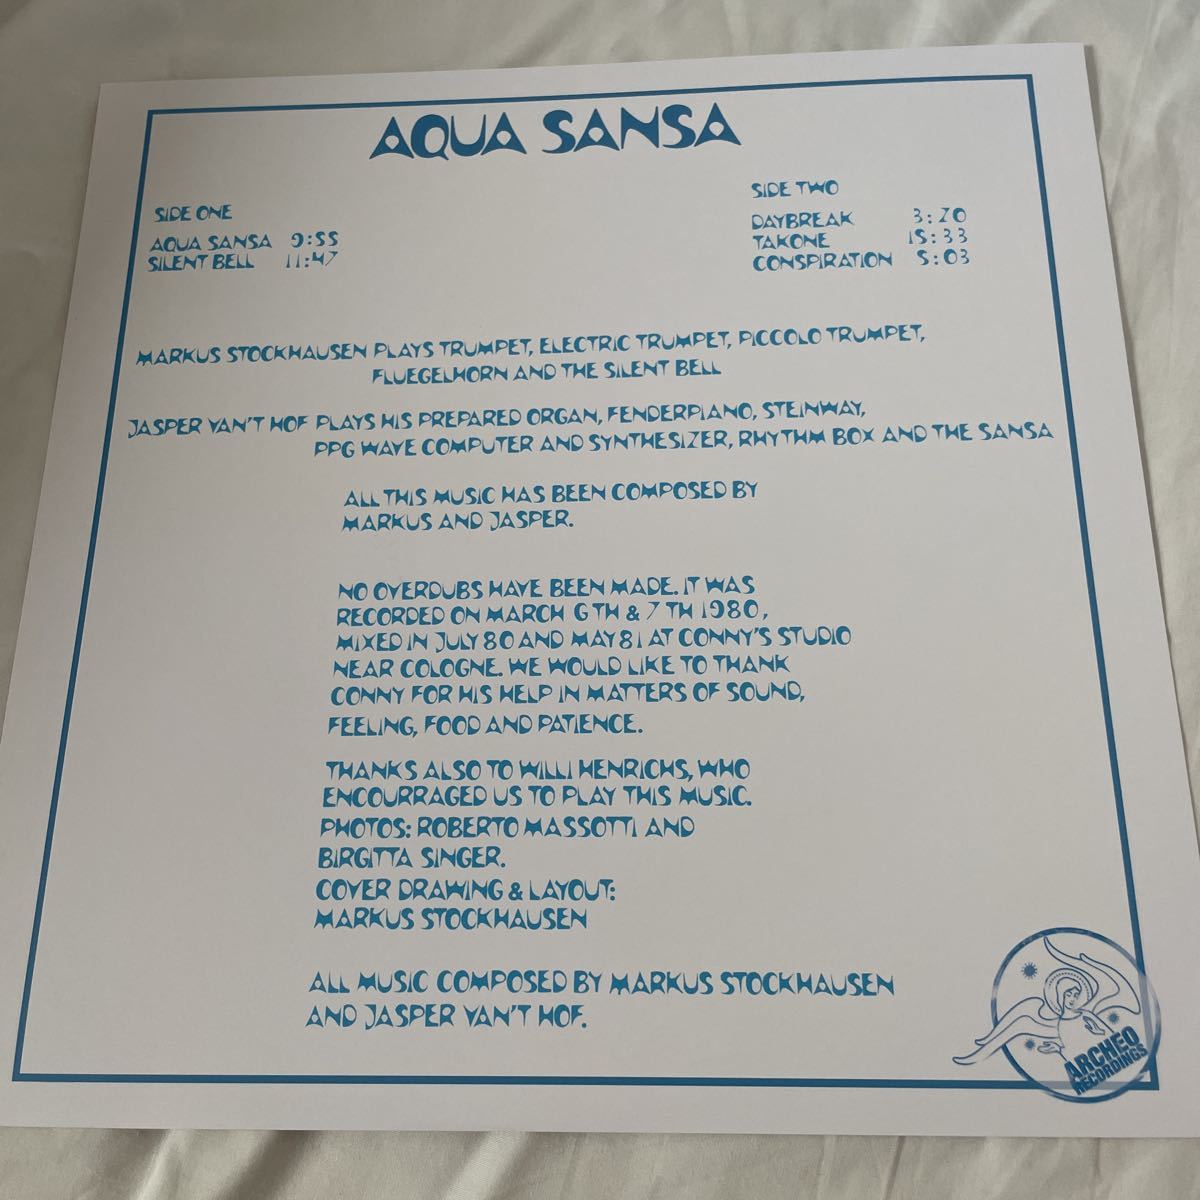 AQUA SANSA
SIDE ONE
AQUA SANSA 9:55
SILENT BELL 11:47
SIDE TWO
DAYBREAK 3:20
TAKONE 15:33
CONSPIRATION 5:03
MARKUS STOCKHAUSEN PLAYS TRUMPET, ELECTRIC TRUMPET, PICCOLO TRUMPET,
FLUEGELHORN AND THE SILENT BELL
JASPER VAN'T HOF PLAYS HIS PREPARED ORGAN, FENDERPIANO, STEINWAY,
PPG WAVE COMPUTER AND SYNTHESIZER, RHYTHM BOX AND THE SANSA
ALL THIS MUSIC HAS BEEN COMPOSED BY
MARKUS AND JASPER.
NO OVERDUBS HAVE BEEN MADE. IT WAS
RECORDED ON MARCH 6TH & 7TH 1980,
MIXED IN JULY 80 AND MAY 81 AT CONNY'S STUDIO
NEAR COLOGNE. WE WOULD LIKE TO THANK
CONNY FOR HIS HELP IN MATTERS OF SOUND,
FEELING, FOOD AND PATIENCE.
THANKS ALSO TO WILLI HENRICHS, WHO
ENCOURRAGED US TO PLAY THIS MUSIC.
PHOTOS: ROBERTO MASSOTTI AND
BIRGITTA SINGER.
COVER DRAWING & LAYOUT:
MARKUS STOCKHAUSEN
ALL MUSIC COMPOSED BY MARKUS STOCKHAUSEN
AND JASPER VAN'T HOF.
ARCHEO
RECORDINGS